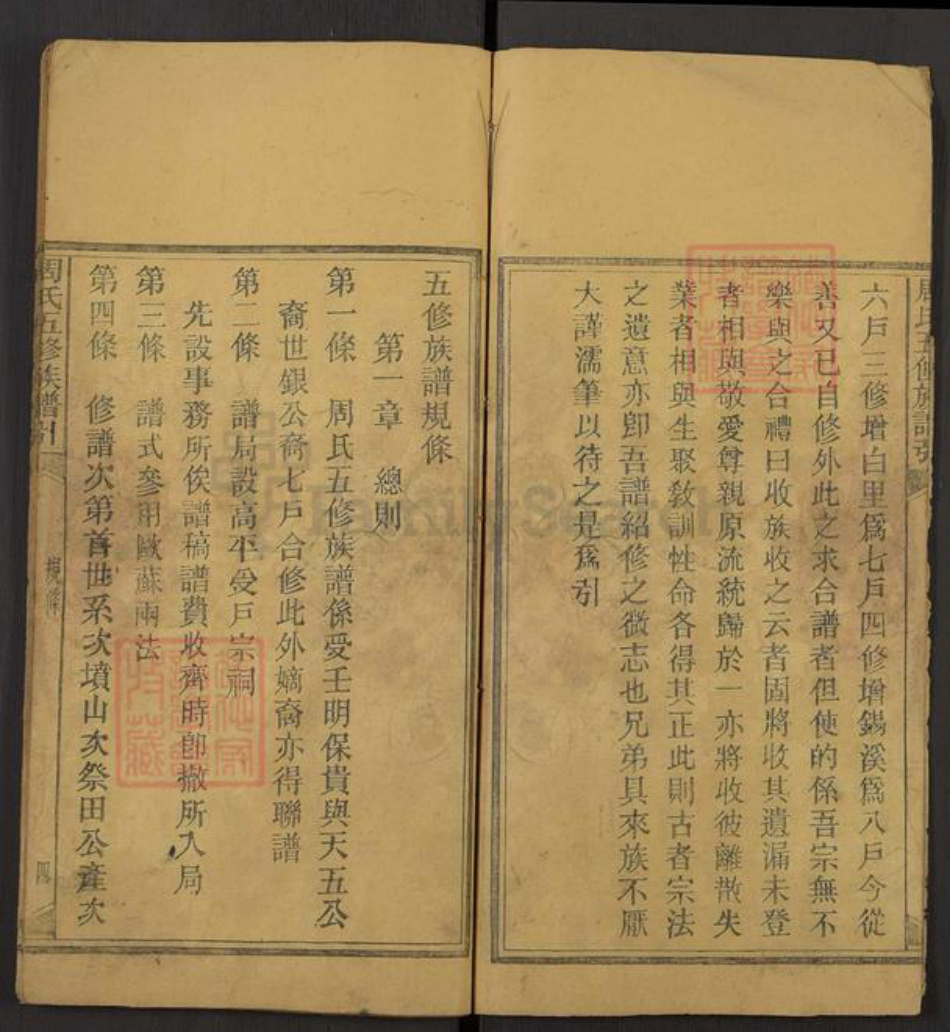 六戶三修增白里爲七戶四修增錫溪爲八戶今從
善又已自修外此之求合譜者但使的係吾宗無不
樂與之合禮曰收族收之云者固將收其遺漏未登
者相與敬愛尊親原流統歸於一亦將收彼離散失
業者相與生聚敎訓性命各得其正此則古者宗法
之遺意亦卽吾譜紹修之微志也兄弟具來族不厭
大謹濡筆以待之是爲引
五修族譜規條
第一章　總則
第一條　周氏五修族譜係受壬明保貴與天五公
裔世銀公裔七戶合修此外嫡裔亦得聯譜
第二條　譜局設高平受戶宗祠
先設事務所俟譜稿譜費收齊時卽撤所入局
第三條　譜式參用歐蘇兩法
第四條　修譜次第首世系次墳山次祭田公產次
周氏五修族譜引
規條
四
周氏五修族譜引
FamilySearch